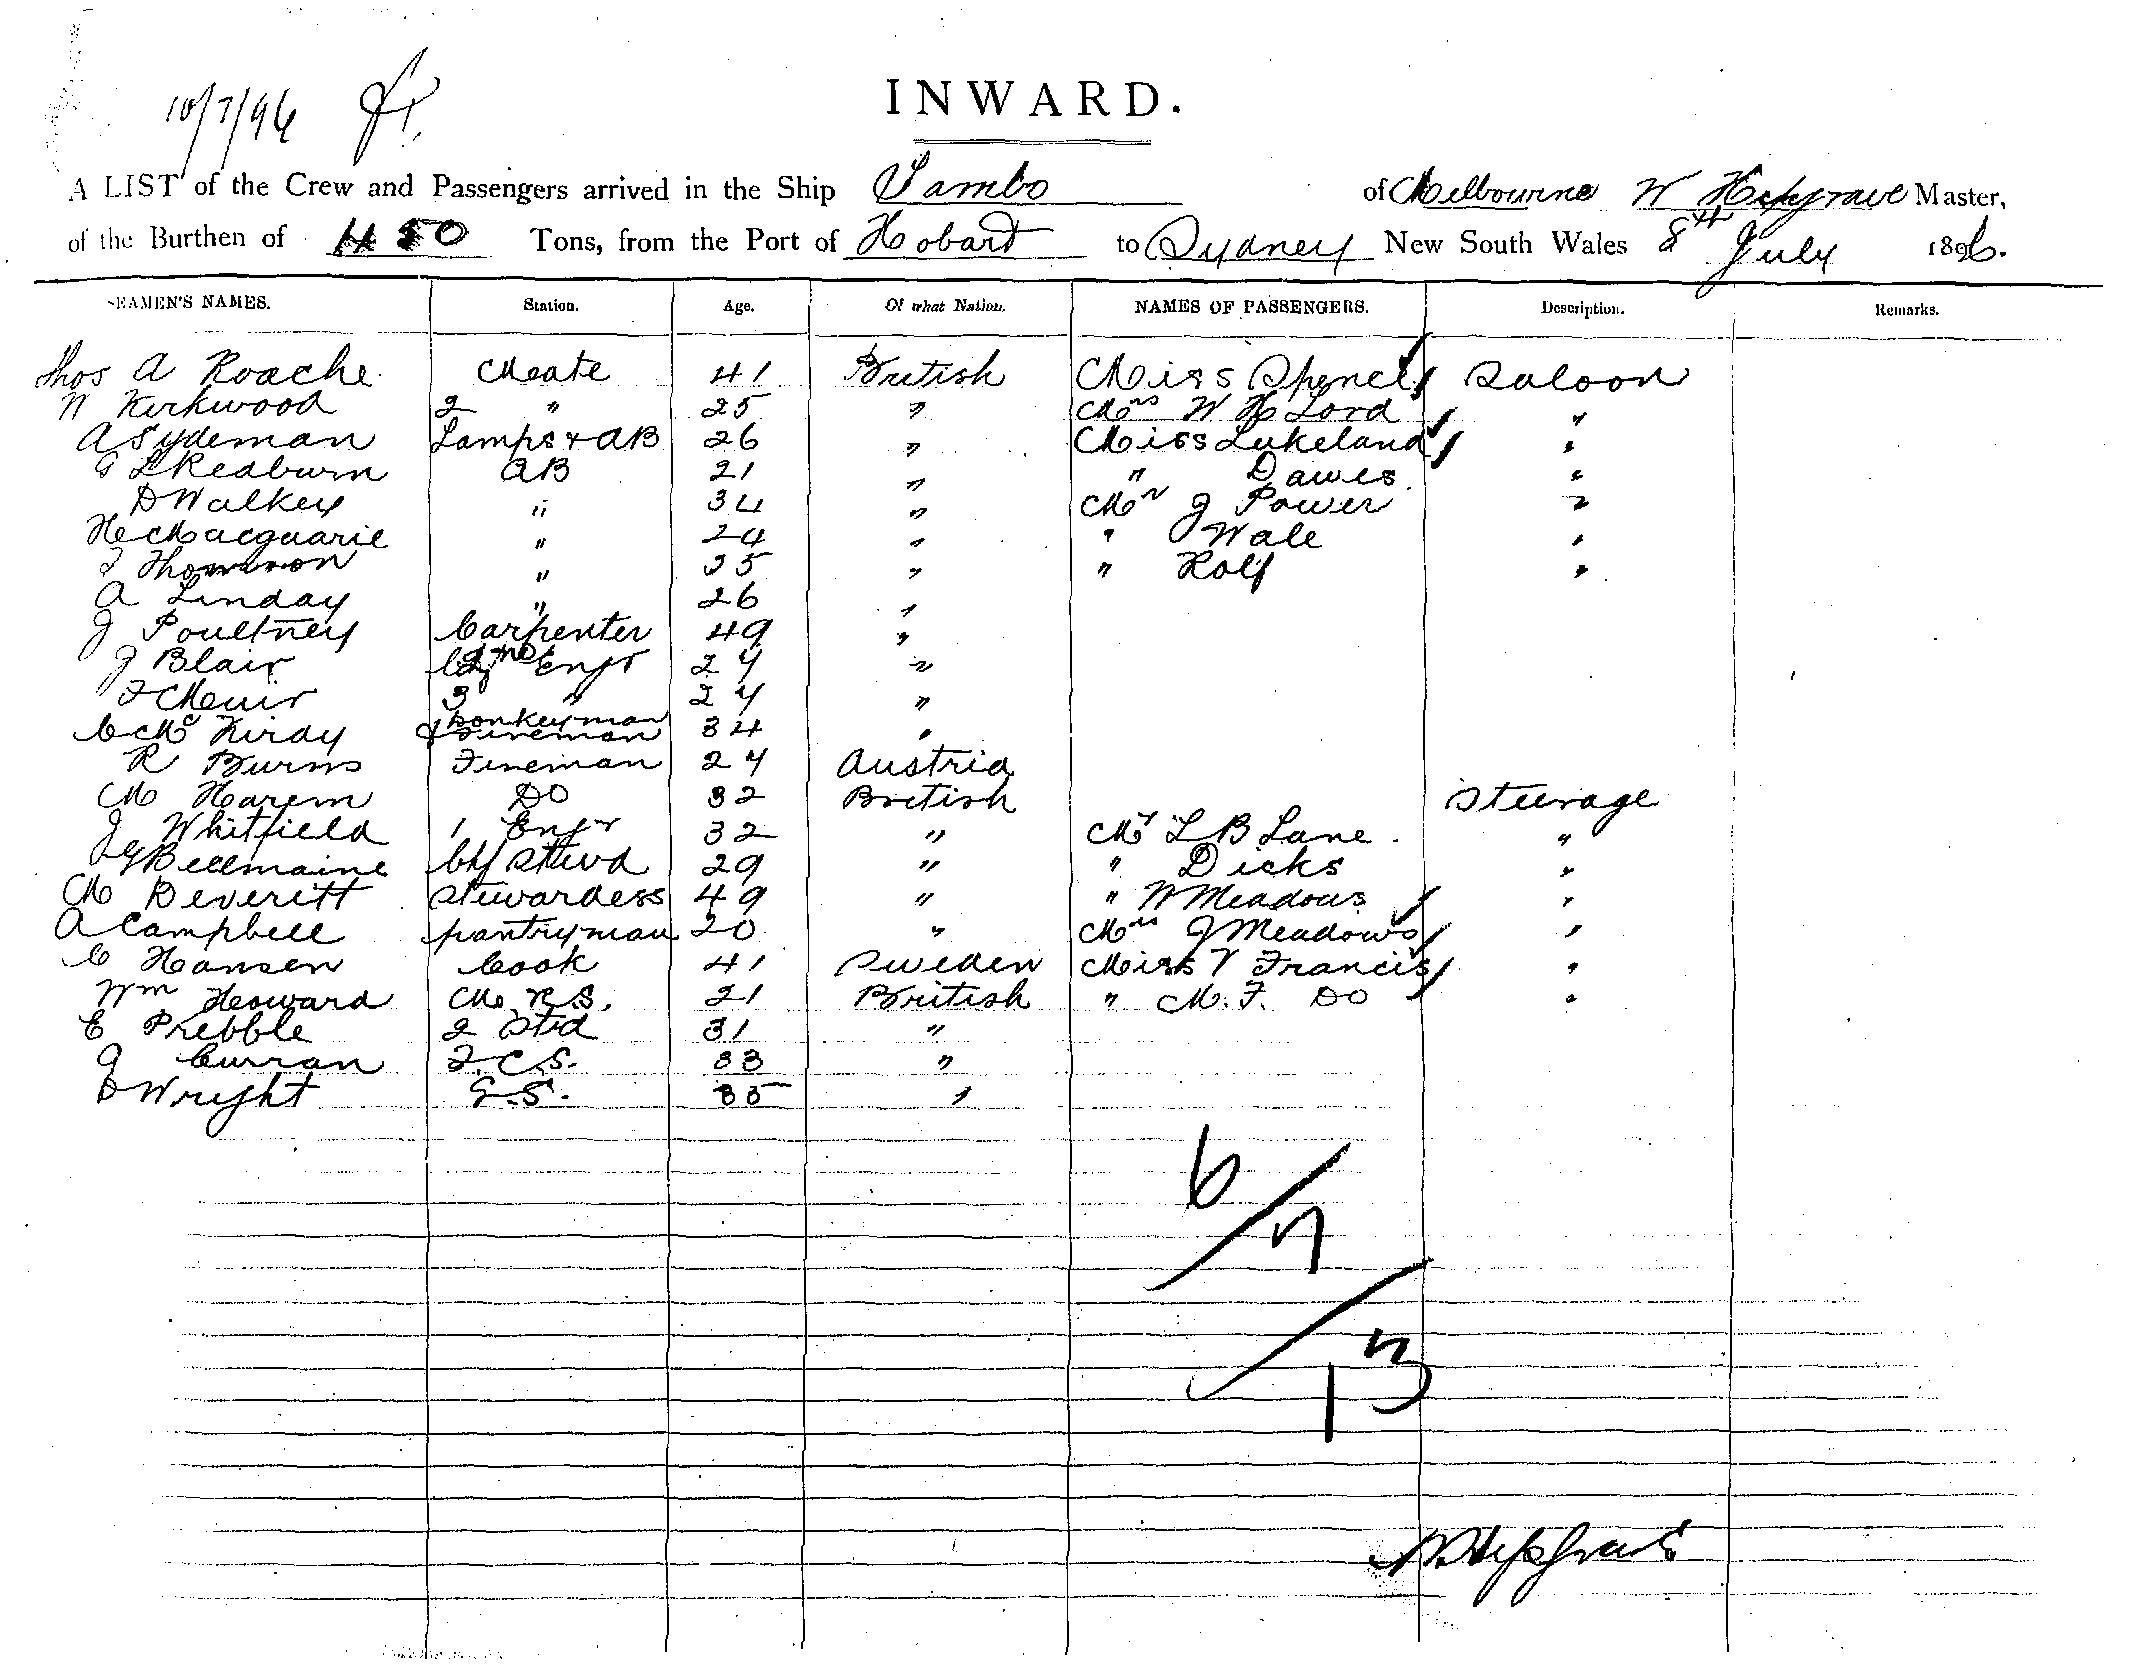 10/7/96
INWARD.
A LIST of the Crew and Passengers arrived in the Ship Tambo of Melbourne W Hepgrave Master,
of the Burthen of 480 Tons, from the Port of Hobart to Sydney New South Wales 8th July 1896.
SEAMEN'S NAMES. Station. Age. Of what Nation. NAMES OF PASSENGERS. Description. Remarks.
Thos A Roache Mate 41 British Miss Spencer Saloon
W Kirkwood 2 " 25 " Mrs W H Lord "
A Sydeman Lamps + AB 26 " Miss Lakeland "
G L Redburn AB 21 " " Dawes "
D Walkey " 34 " Mr J Power "
H Macquarie " 24 " " Wale "
J Thomson " 35 " " Rolf "
A Linday " 26 "
J Poultney Carpenter 49 "
J Blair 2nd Engr 24 "
F Muir 3 " 24 "
C Mc Kirdy Donkeyman & Fireman 34 "
R Burns Fireman 24 Austria
M Harem Do 32 British Steerage
J Whitfield 1 Engr 32 " Mr L B Lane "
J G Bellmaine Chf Stewd 29 " " Dicks "
M Deveritt Stewardess 49 " " W Meadows "
A Campbell pantryman 20 " Mrs J Meadows "
C Hansen Cook 41 Sweden Miss V Francis "
Wm Howard M. R. S. 21 British " M. F. Do "
E Prebble 2 Std 31 "
J Curran F. C. S. 33 "
D Wright G. S. 35 "
6/7/13